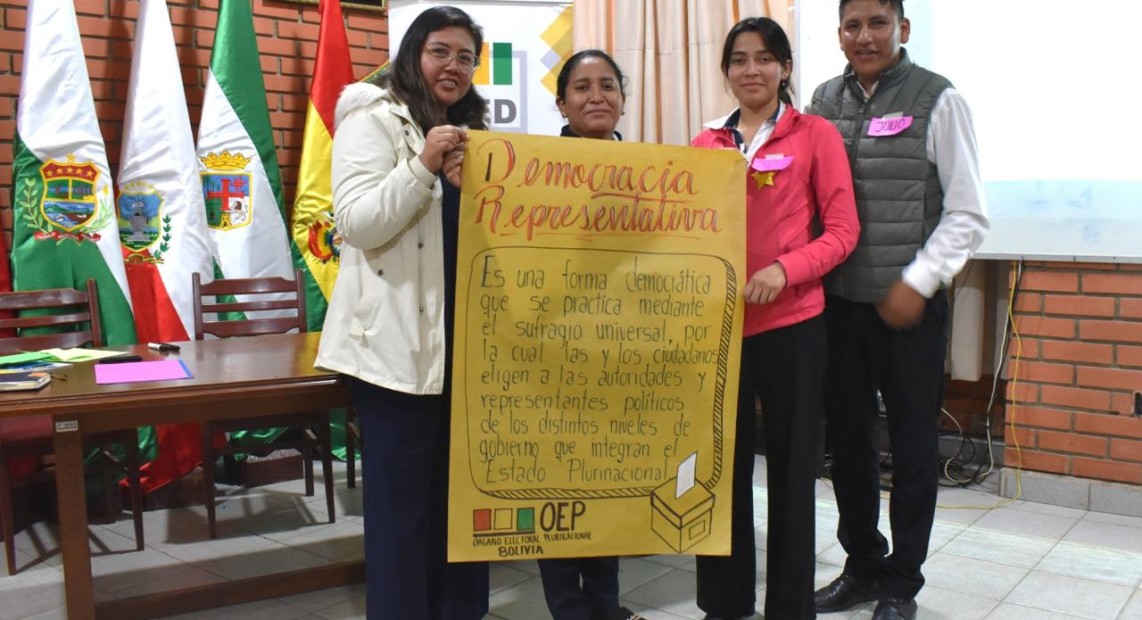 ED
JULIO
Democracia
Representativa
Es una forma democrática
que se practica mediante
el sufragio universal, por
la cual las y los ciudadanos
eligen a las autoridades y
representantes políticos
de los distintos niveles de
gobierno que integran el
Estado Plurinacional
OEP
ÓRGANO ELECTORAL PLURINACIONAL
BOLIVIA